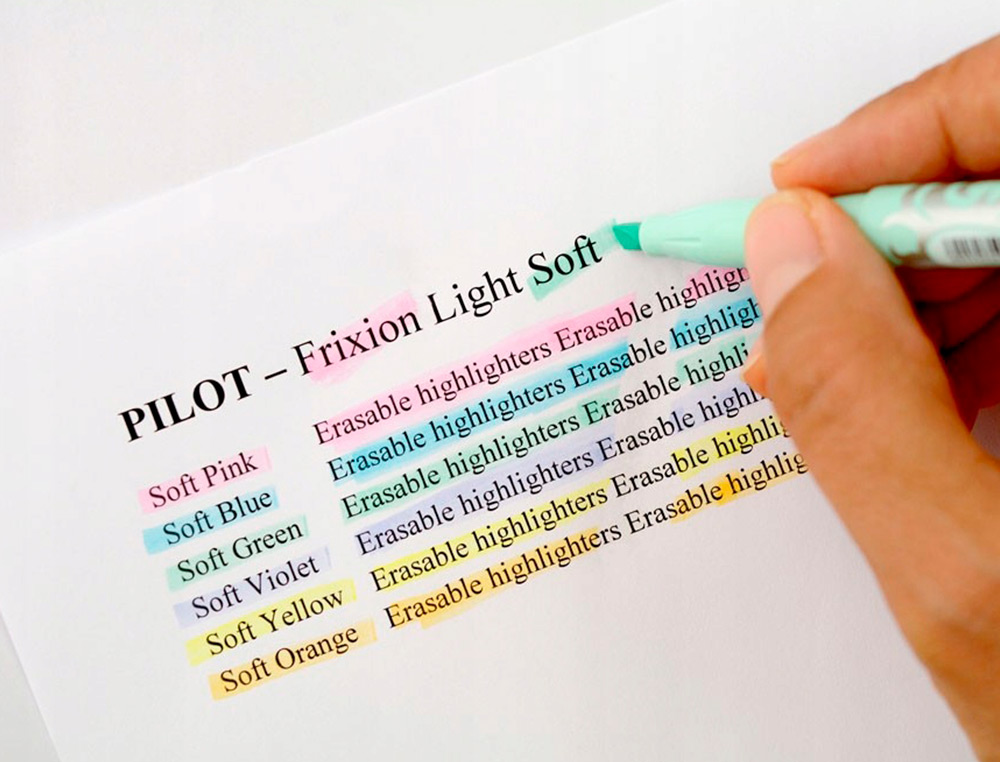 PILOT – Frixion Light Soft
Soft Pink Erasable highlighters Erasable
Soft Blue Erasable highlighters Erasable
Soft Green Erasable highlighters Erasable
Soft Violet Erasable highlighters Erasable
Soft Yellow Erasable highlighters Erasable
Soft Orange Erasable highlighters Erasable